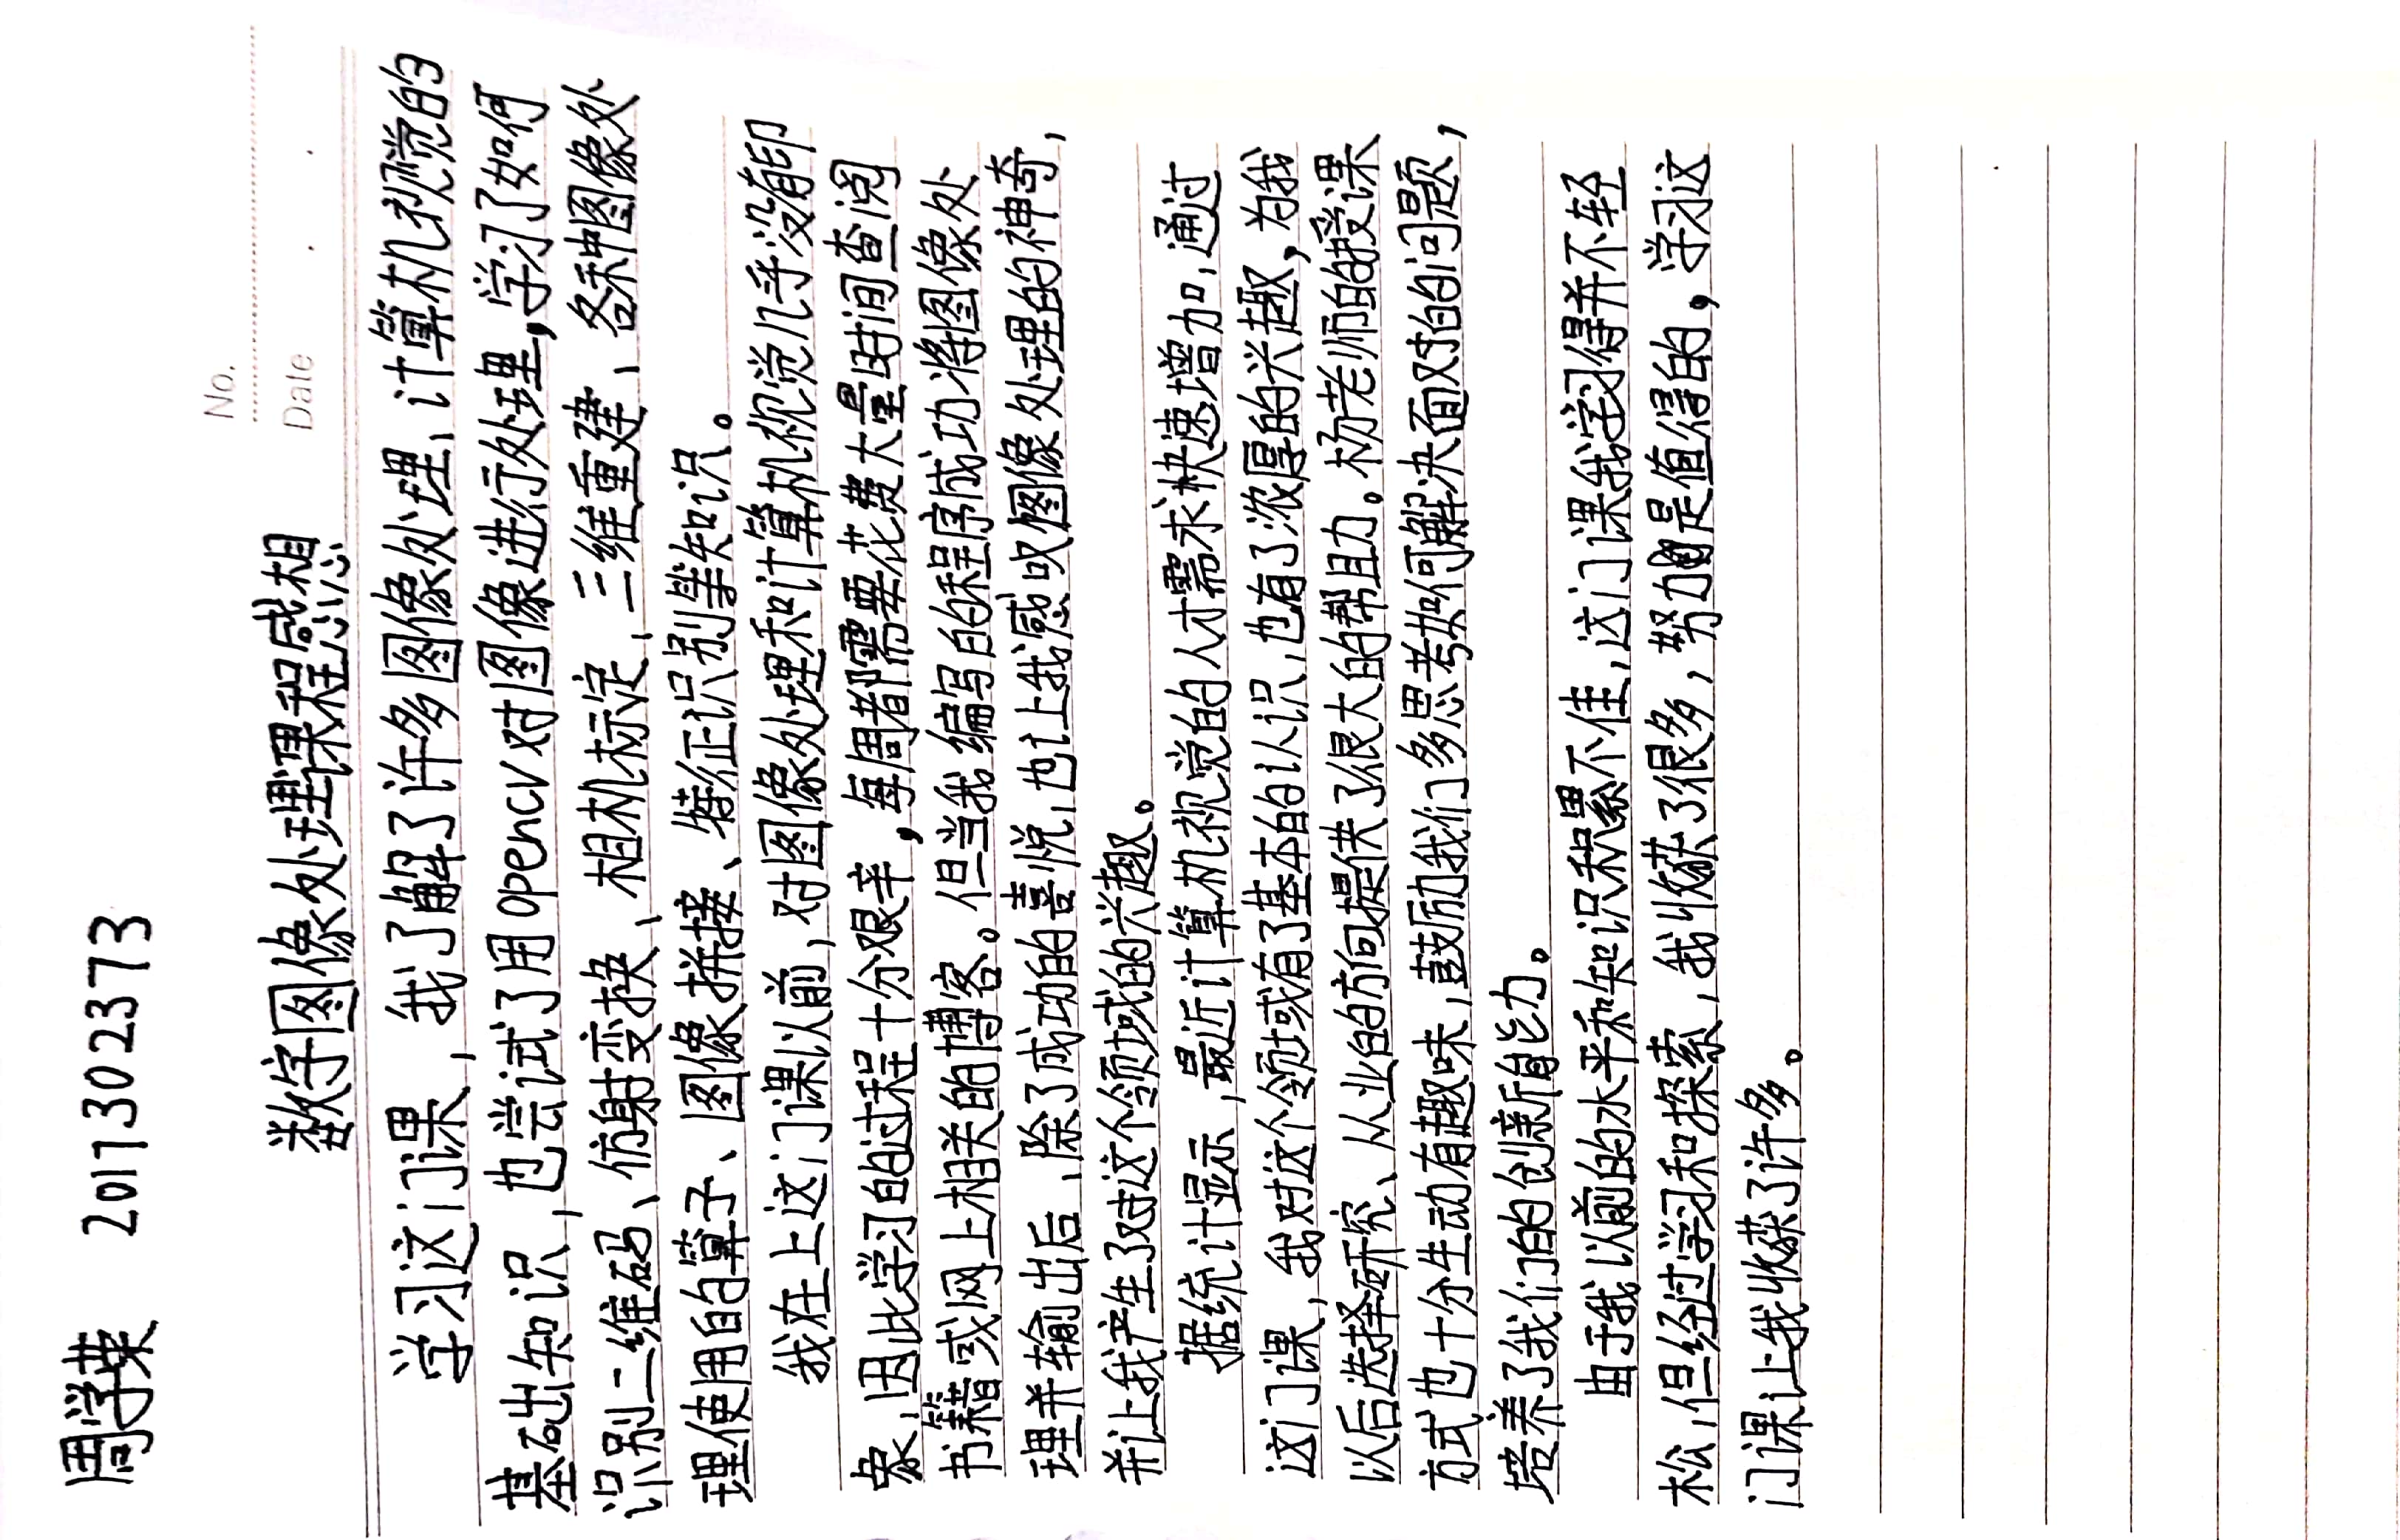 周学棐 2017302373
No.
Date
数字图像处理课程感想
学习这门课，我了解了许多图像处理、计算机视觉的
基础知识，也尝试了用opencv对图像进行处理，学习了如何
识别二维码、仿射变换、相机标定、三维重建、各种图像处
理使用的算子、图像拼接、特征识别等知识。
我在上这门课以前，对图像处理和计算机视觉几乎没有印
象，因此学习的过程十分艰辛，每周都需要花费大量时间查阅
书籍或网上相关的博客。但当我编写的程序成功将图像处
理并输出后，除了成功的喜悦，也让我感叹图像处理的神奇，
并让我产生了对这个领域的兴趣。
据统计显示，最近计算机视觉的人才需求快速增加，通过
这门课，我对这个领域有了基本的认识，也有了浓厚的兴趣，为我
以后选择研究、从业的方向提供了很大的帮助。杨老师的授课
方式也十分生动有趣味，鼓励我们多思考如何解决面对的问题，
培养了我们的创新能力。
由于我以前的水平和知识积累不佳，这门课我学习得并不轻
松，但经过学习和探索，我收获了很多，努力是值得的，学习这
门课让我收获了许多。